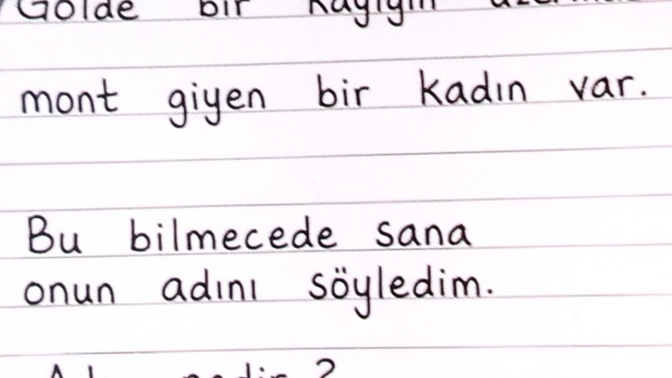 Gölde bir kayığın
mont giyen bir kadın var.
Bu bilmecede sana
onun adını söyledim.
nedir?